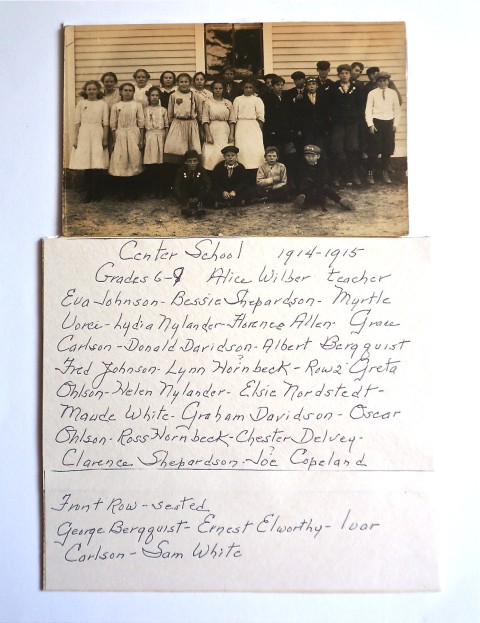 Center School 1914-1915
Grades 6-8 Alice Wilber teacher
Eva Johnson- Bessie Shepardson- Myrtle
Voree- Lydia Nylander- Florence Allen- Grace
Carlson- Donald Davidson- Albert Bergquist
Fred Johnson- Lynn Hornbeck- Row 2 Greta
?
Ohlson- Helen Nylander- Elsie Nordstedt-
Maude White- Graham Davidson- Oscar
Ohlson- Ross Hornbeck- Chester Delvey-
?
Clarence Shepardson- Joe Copeland
Front Row - seated
George Bergquist- Ernest Elworthy- Ivar
Carlson- Sam White